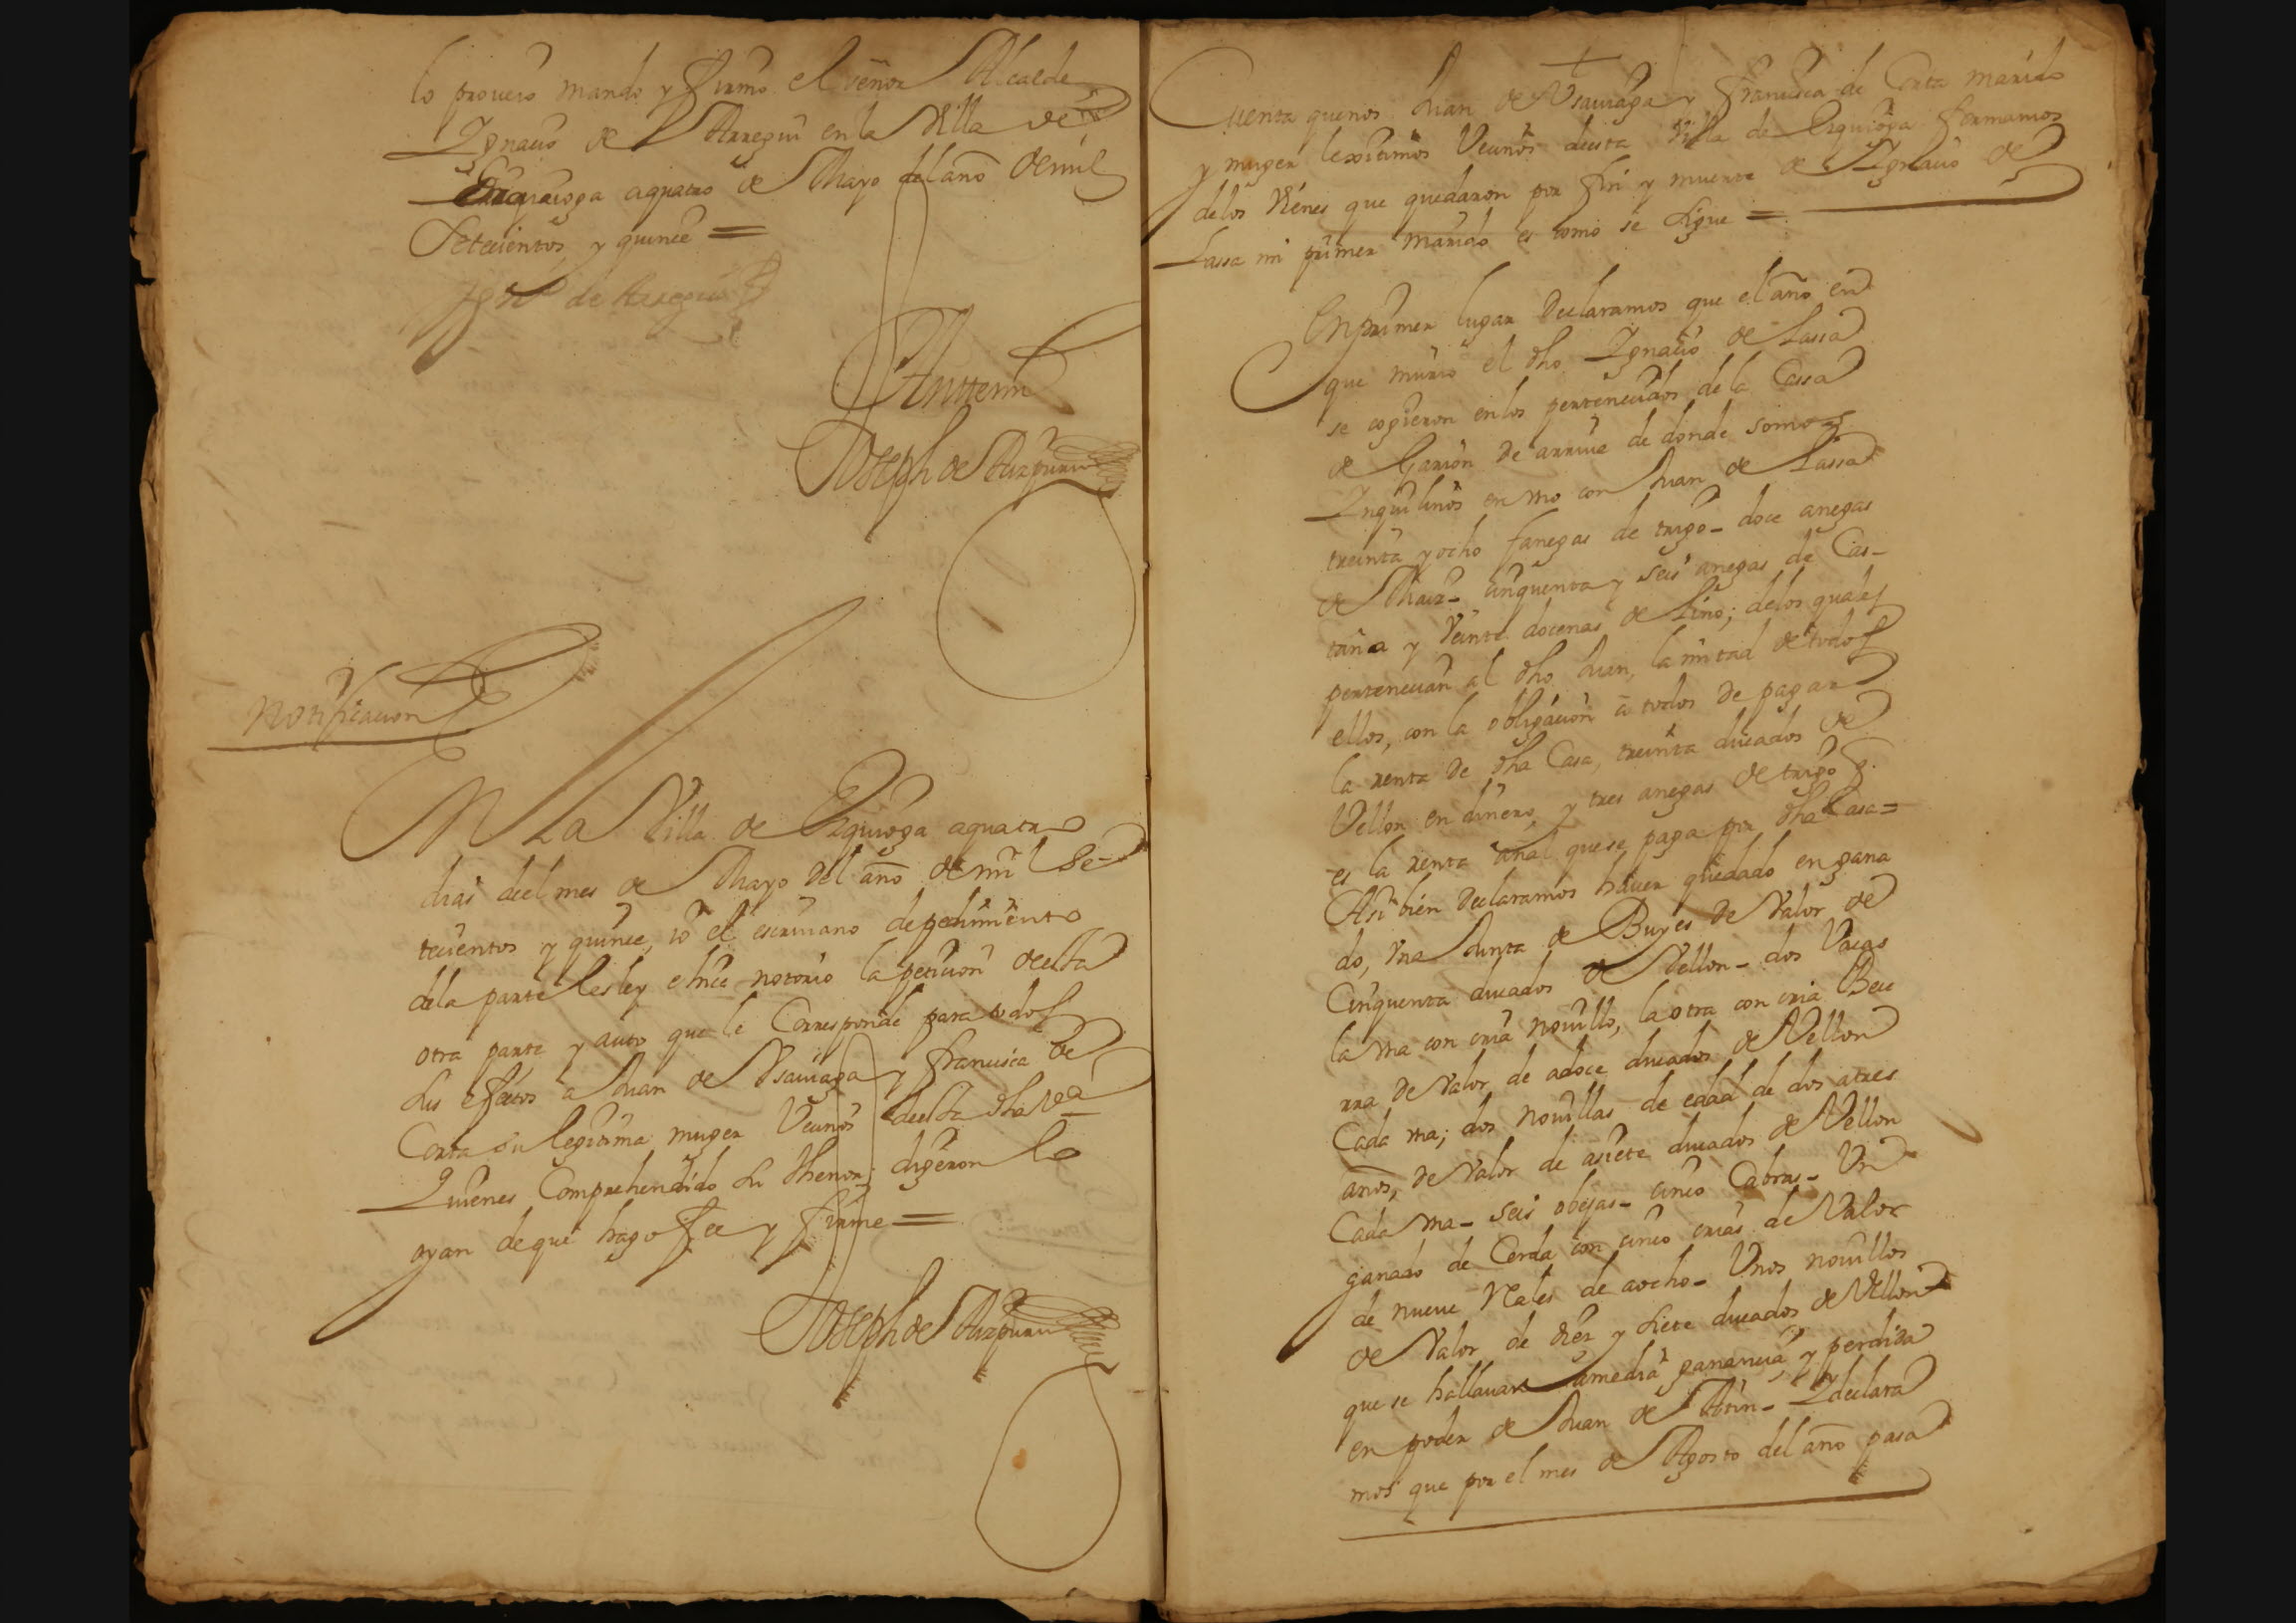 lo proueio mando y firmo el señor Alcalde
Ignacio de Arregui en la Villa de
Ezquioga a quatro de Mayo del año de mil
Setecientos y quince =
Ignº de Arregui
Antemi
Joseph de Aizpuru
Notificacion
En La Villa de Ezquioga a quatro
dias deel mes de Mayo del año de mil Se-
tecientos y quince, io el escriuano de pedimiento
dela parte les ley e hice notorio la peticion deesta
otra parte y auto que le Corresponde para todos
sus efectos a Juan de Vsauiaga y francisca de
Corta su legitima muger Vecinos deesta dha Vª
Quienes Comprehendido su thenor; digeron lo
oyan de que hago fee y firme =
Joseph de Aizpuru
Cuenta que nos Juan de Vsauiaga y francisca de Corta marido
y muger lexitimos Vecinos desta Villa de Ezquioga formamos
delos Vienes que quedaron por fin y muerte de Ignacio de
Lassa mi primer marido es como se sigue =
En primer lugar declaramos que el año en
que murio el dho Ignacio de Lassa
se cogieron en los pertenecidos de la Cassa
de Garin de arriua de donde somos
Inquilinos en vno con Juan de Lassa
treinta y ocho fanegas de trigo - doce anegas
de Maiz - cinquenta y seis anegas de Cas-
taña y Veinte docenas de Lino; delos quales
pertenecian al dho Juan, la mitad de todos
ellos, con la obligacion a todos de pagar
la renta de dha Casa, treinta ducados de
Vellon en dinero, y tres anegas de trigo q.
es la renta añal que se paga por dha Casa =
Asi bien declaramos hauer quedado en gana
do, vna Junta de Buyes de Valor de
Cinquenta ducados de Vellon - dos Vacas
la vna con cria nouillo, la otra con cria Bece
rra de Valor de a doce ducados de Vellon
Cada vna; dos nouillas de edad de dos a tres
años, de Valor de a siete ducados de Vellon
Cada vna - seis obejas - cinco Cabras - Vn
ganado de Cerda con cinco crias de Valor
de nueue Reales de a ocho - Vnos nouillos
de Valor de diez y siete ducados de Vellon
que se hallauan a media ganancia y perdida
en poder de Juan de - declara
mos que por el mes de Agosto del año pasa